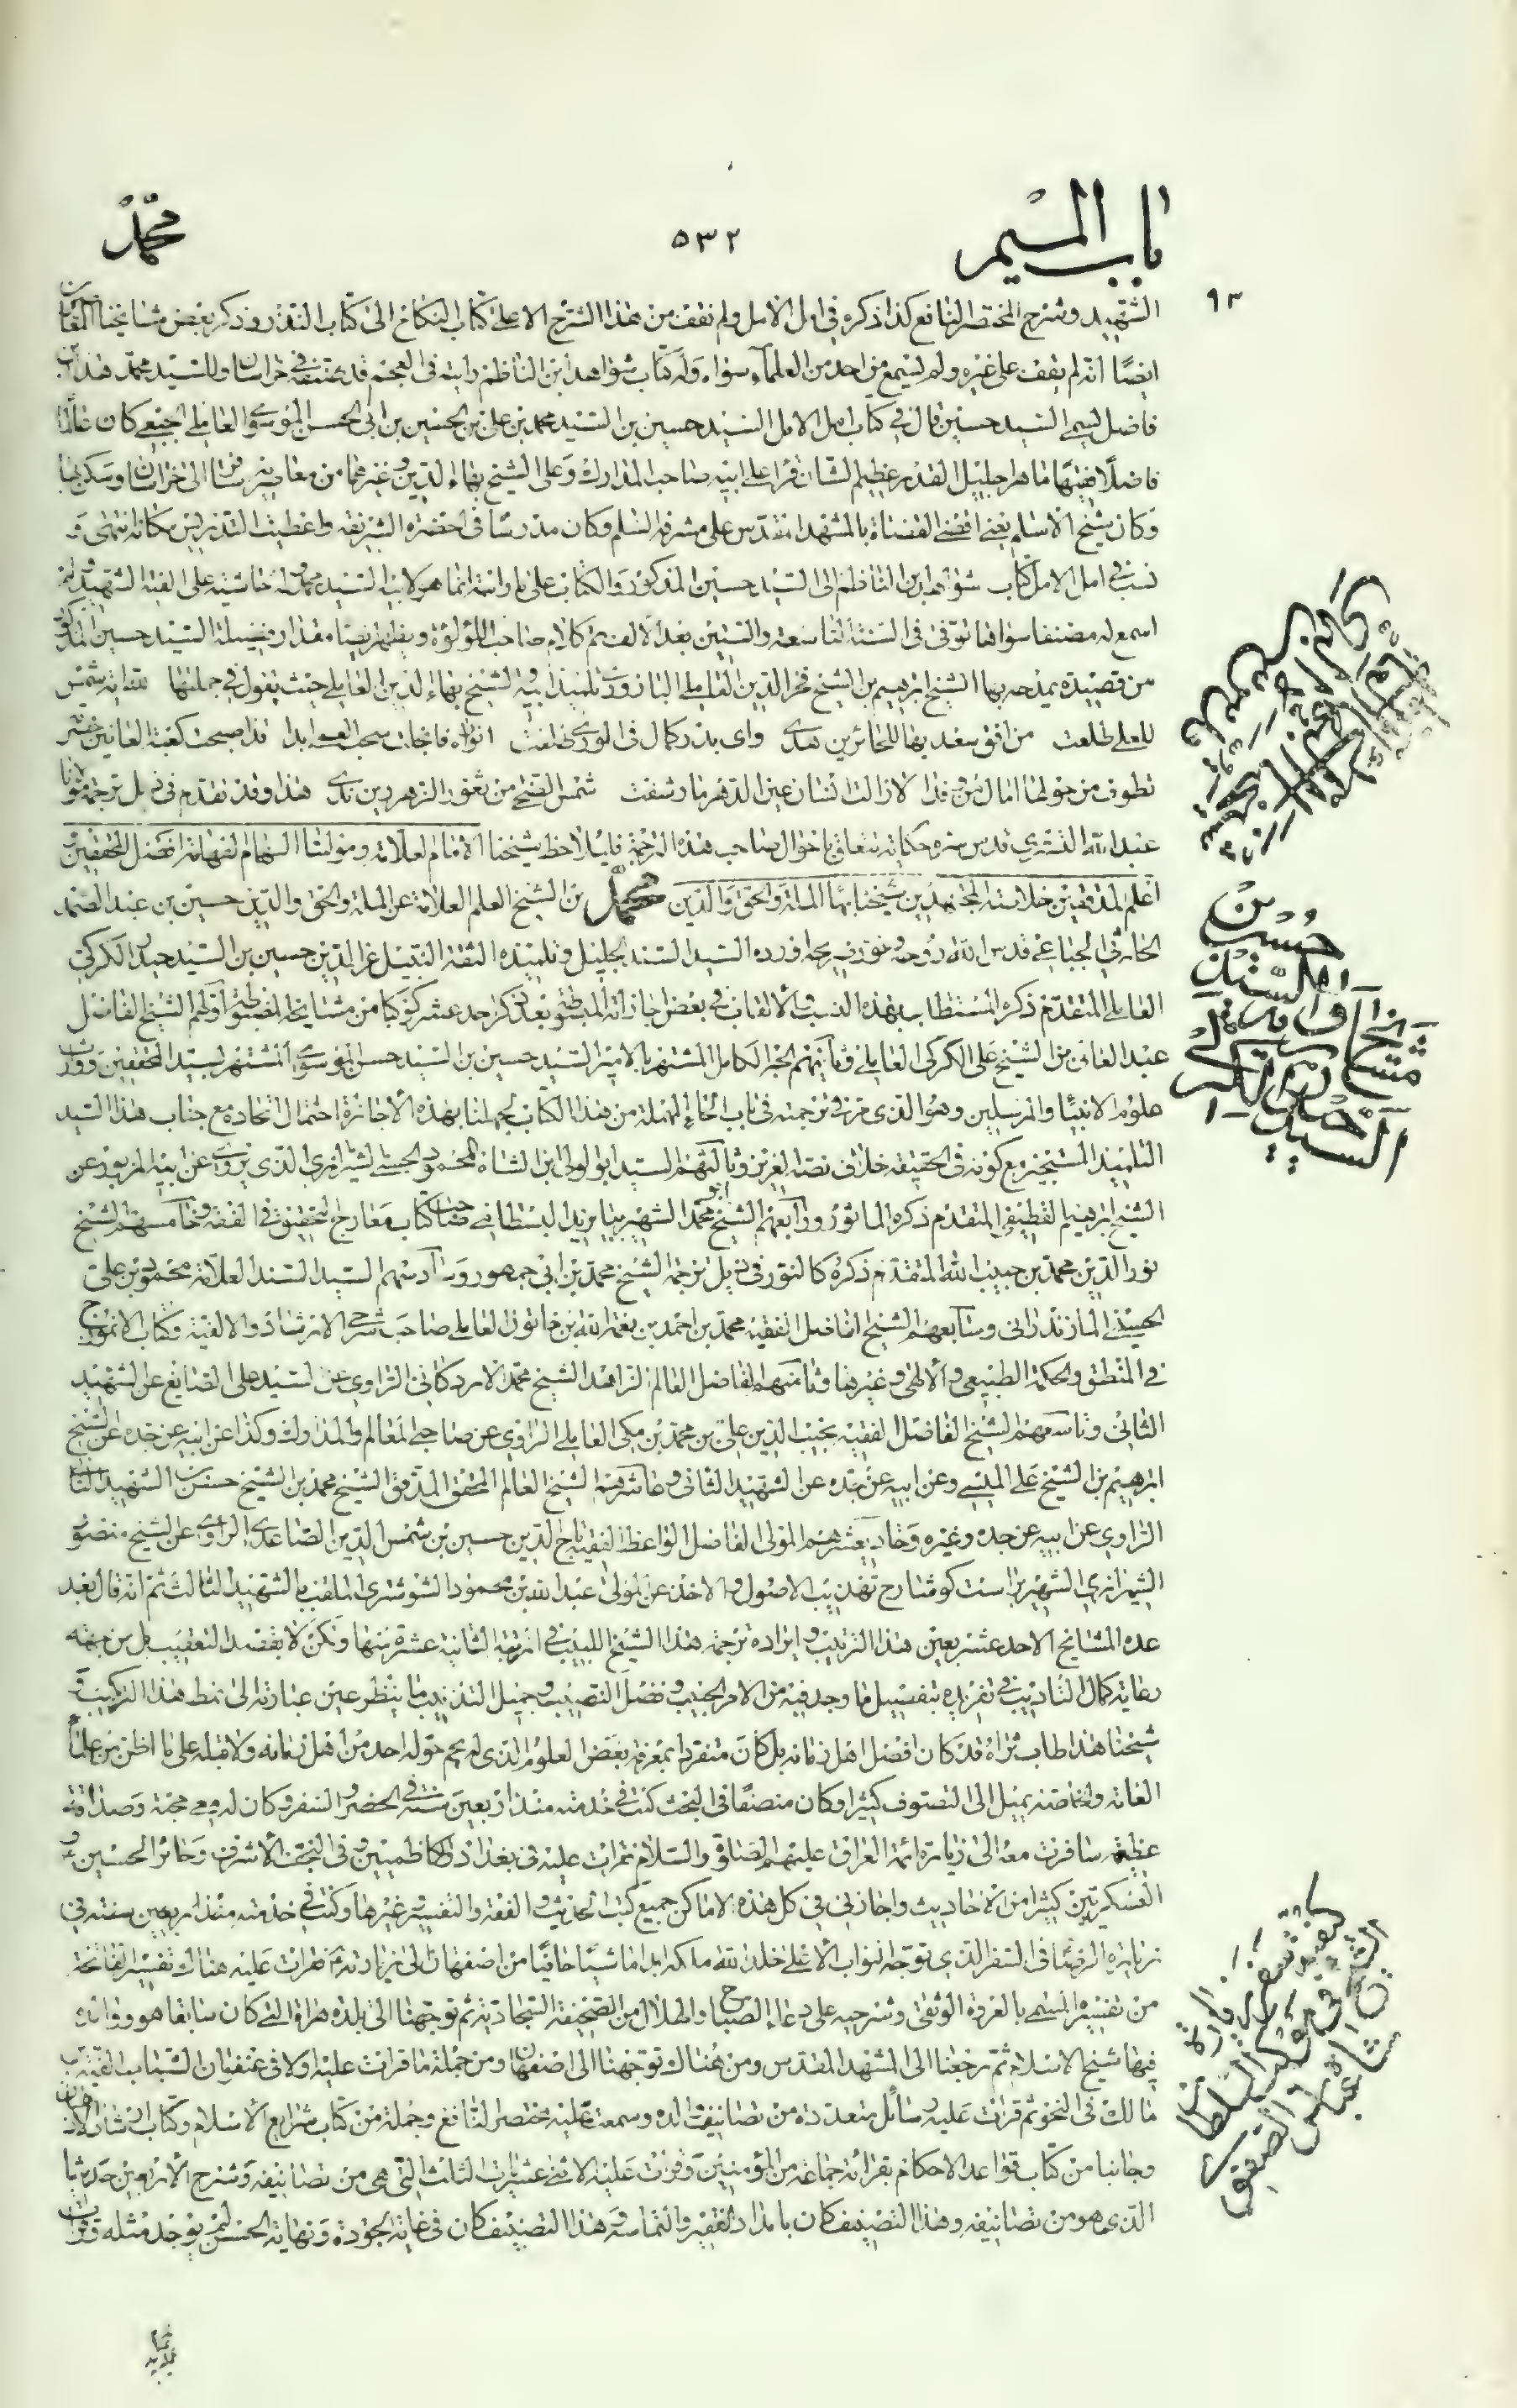 باب الميم
٥٣٢
محمد
٩٣
الشهيد وشرح المختصر النافع كذا ذكره في امل الامل ولم نقف من هذا الشرح الا على كتاب النكاح الى كتاب النذر وذكر بعض مشايخنا المعاصرين
ايضا انه لم يقف على غيره ولم يسمع من احد من العلماء سواه وله كتاب شواهد ابن الناظم رايته في العجم قد صنفه في خراسان وللسيد محمد هذا ابن
فاضل يسمى السيد حسين قال في كتاب امل الامل السيد حسين بن السيد محمد بن علي بن الحسين بن ابي الحسن الموسوي العاملي الجبعي كان عالما
فاضلا فقيها ماهرا جليل القدر عظيم الشان قرا على ابيه صاحب المدارك وعلى الشيخ بهاء الدين وغيرهما من معاصريه سافر الى خراسان وسكن بها
وكان شيخ الاسلام يعني اقضى القضاة بالمشهد المقدس على مشرفه السلم وكان مدرسا في الحضرة الشريفة واعطيت التدريس مكانه انتهى و
نسب في امل الامل كتاب شواهد ابن الناظم الى السيد حسين المذكور والكتاب على ما رايته انما هو لابيه السيد محمد له حاشية على الفية الشهيد لم
اسمع له مصنفا سواها توفي في السنة التاسعة والستين بعد الالف تم كلام صاحب اللؤلؤة ويظهر ايضا مقدار فضيلة السيد حسين المذكور
من قصيدة يمدحه بها الشيخ ابرهيم بن الشيخ فخر الدين العاملي البازوري تلميذ ابيه والشيخ بهاء الدين العاملي حيث يقول في جملتها لله اية شمس
للعلى طلعت من افق سعد بها للحائرين هدى واي بدر كمال في الورى طلعت انواره فانجلت سحب العمى ابدا قد اصبحت كعبة العافين حضرته
تطوف من حولها امال من وفدا لا زالت انسان عين الدهر ما رشفت شمس الضحى من ثغور الزهر ريق ندى هذا وقد تقدم في ذيل ترجمة مولانا
عبد الله التستري قدس سره حكاية تتعلق باحوال صاحب هذه الترجمة فليلاحظ شيخنا الامام العلامة ومولينا الهمام الفهامة افضل المحققين و
اعلم المدققين خلاصة المجتهدين شيخنا بهاء الملة والحق والدين محمد بن الشيخ العلم العلامة عز الملة والحق والدين حسين بن عبد الصمد
الحارثي الجباعي قدس الله روحه ونور ضريحه اورده السيد السند الجليل وتلميذه الثقة النبيل عز الدين حسين بن السيد حيدر الكركي
العاملي المتقدم ذكره المستطاب بهذه النسب والالقاب في بعض اجازاته المبسوطة بعد ذكر احد عشر كوكبا من مشايخه المضبوطة اولهم الشيخ الفاضل
عبد العالي بن الشيخ علي الكركي العاملي وثانيهم الحبر الكامل المشتهر بالامير السيد حسين بن السيد حسن الموسوي المشتهر بسيد المحققين ووارث
علوم الانبياء والمرسلين وهو الذي مر في ترجمته في باب الحاء المهملة من هذا الكتاب بجملتنا بهذه الاجازة احتمال اتحاده مع جناب هذا السيد
التلميذ المستجيز مع كونه في الحقيقة خلاف نصه العزيز وثالثهم السيد ابو الولي ابن الشاه محمود الحسيني الشيرازي الذي يروي عن ابيه المزبور عن
الشيخ ابرهيم القطيفي المتقدم ذكره الماثور ورابعهم الشيخ ابو محمد الشهير ببايزيد البسطامي صاحب كتاب معارج التحقيق في الفقه وخامسهم الشيخ
نور الدين محمد بن حبيب الله المتقدم ذكره كالنور في ذيل ترجمة الشيخ محمد بن ابي جمهور وسادسهم السيد السند العلامة محمود بن علي
الحسيني المازندراني وسابعهم الشيخ الفاضل الفقيه محمد بن احمد بن نعمة الله بن خاتون العاملي صاحب شرحي الارشاد والالفية وكتاب الانموذج
في المنطق والحكمة الطبيعي والالهي وغيرها وثامنهم الفاضل العالم الزاهد الشيخ محمد الاردكاني الراوي عن السيد علي الصايغ عن الشهيد
الثاني وتاسعهم الشيخ الفاضل الفقيه نجيب الدين علي بن محمد بن مكي العاملي الراوي عن صاحبي المعالم والمدارك وكذا عن ابيه عن جده عن الشيخ
ابرهيم بن الشيخ علي الميسي وعن ابيه عن جده عن الشهيد الثاني وعاشرهم الشيخ العالم المحقق المدقق الشيخ محمد بن الشيخ حسن بن الشهيد الثاني
الراوي عن ابيه عن جده وغيره وحاديعشرهم المولى الفاضل الواعظ الفقيه تاج الدين حسين بن شمس الدين الصاعدي الراوي عن الشيخ منصور
الشيرازي الشهير براست كو شارح تهذيب الاصول والاخذ عن المولى عبد الله بن محمود الشوشتري الملقب بالشهيد الثالث ثم انه قال بعد
عده المشايخ الاحد عشر بعين هذا الترتيب وايراده ترجمة هذا الشيخ اللبيب في المرتبة الثانية عشرة منها ولكن لا بقصد التعقيب بل من جهة
رعاية كمال التاديب في تفريده بتفصيل ما وجد فيه من الامر الجنيب وفضل النصيب وجميل التذنيب ما ينظر عين عبارته الى نمط هذا التركيب و
شيخنا هذا طاب ثراه قد كان افضل اهل زمانه بل كان متفردا بمعرفة بعض العلوم الذي لم يحم حوله احد من اهل زمانه ولا قبله على ما اظن من علماء
العامة والخاصة يميل الى التصوف كثيرا وكان منصفا في البحث كنت في خدمته منذ اربعين سنة في الحضر والسفر وكان له معي محبة وصداقة
عظيمة سافرت معه الى زيارة ائمة العراق عليهم الصلوة والسلام فقرات عليه في بغداد والكاظميين وفي النجف الاشرف وحائر الحسين و
العسكريين كثيرا من الاحاديث واجازني في كل هذه الاماكن جميع كتب الحديث والفقه والتفسير وغيرها وكنت في خدمته منذ اربعين سنة في
زيارة الرضا في السفر الذي توجه النواب الاعلى خلد الله ملكه ابدا ماشيا حافيا من اصفهان الى زيارته فقرات عليه هناك تفسير الفاتحة
من تفسيره المسمى بالعروة الوثقى وشرحيه على دعاء الصباح والهلال من الصحيفة السجادية ثم توجهنا الى بلدة هراة التي كان سابقا هو ووالده
فيها شيخ الاسلام ثم رجعنا الى المشهد المقدس ومن هناك توجهنا الى اصفهان ومن جملة ما قرات عليه اولا في عنفوان الشباب الفية ابن
مالك في النحو ثم قرات عليه رسائل متعددة من تصانيف والده وسمعت عليه مختصر النافع وجملة من كتاب شرايع الاسلام وكتاب ارشاد الاذهان
وجانبا من كتاب قواعد الاحكام بقرائة جماعة من المؤمنين وقرات عليه الاثني عشريات الثلث التي هي من تصانيفه وشرح الاربعين حديثا
الذي هو من تصانيفه وهذا التصنيف كان بامداد الفقير والتماسه وهذا التصنيف كان في غاية الجودة ونهاية الحسن لم يوجد مثله وقرات
حسين بن
مشايخ
السيد